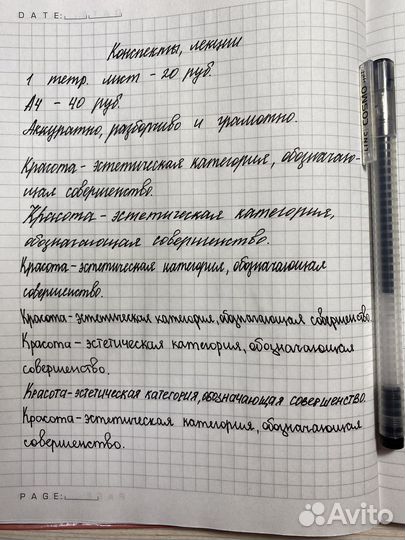 DATE:
Конспекты, лекции
1 тетр. лист - 20 руб.
А4 - 40 руб.
Аккуратно, разборчиво и грамотно.
Красота - эстетическая категория, обозначаю-
щая совершенство.
Красота - эстетическая категория,
обозначающая совершенство.
Красота - эстетическая категория, обозначающая
совершенство.
Красота - эстетическая категория, обозначающая совершенство.
Красота - эстетическая категория, обозначающая
совершенство.
Красота - эстетическая категория, обозначающая совершенство.
Красота - эстетическая категория, обозначающая
совершенство.
PAGE:
LINE COSMO
Avito